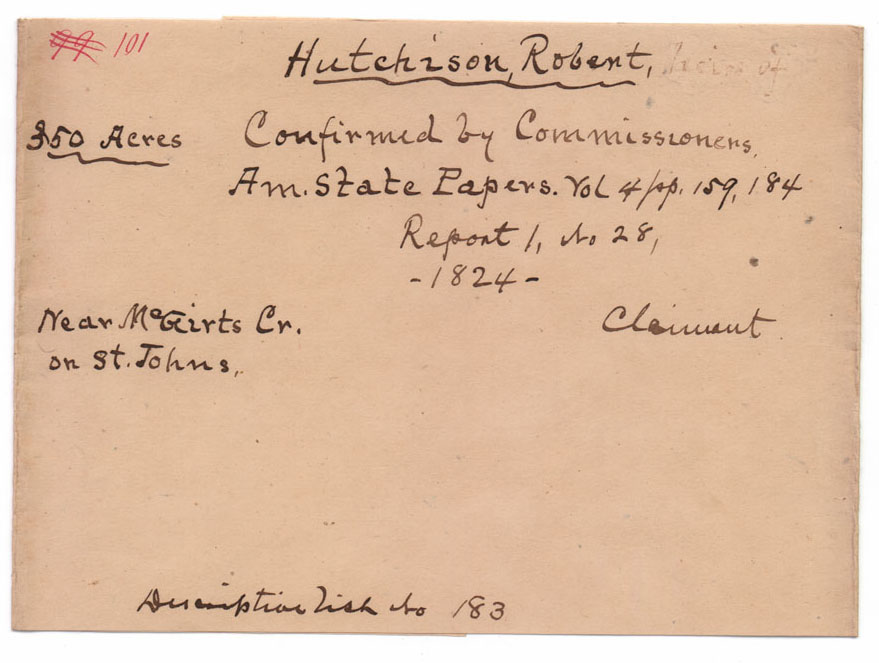 99 101
Hutchison, Robert, Heirs of
350 Acres
Confirmed by Commissioners,
Am. State Papers. Vol 4 pp. 159, 184
Report 1, No 28,
-1824-
Near McGirts Cr.
on St. Johns,
Claimant
Descriptive List No 183